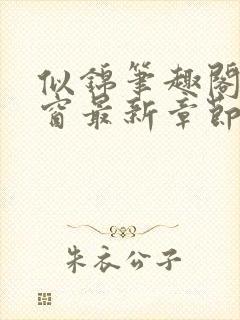 似锦笔趣阁
窗最新章节
朱衣公子